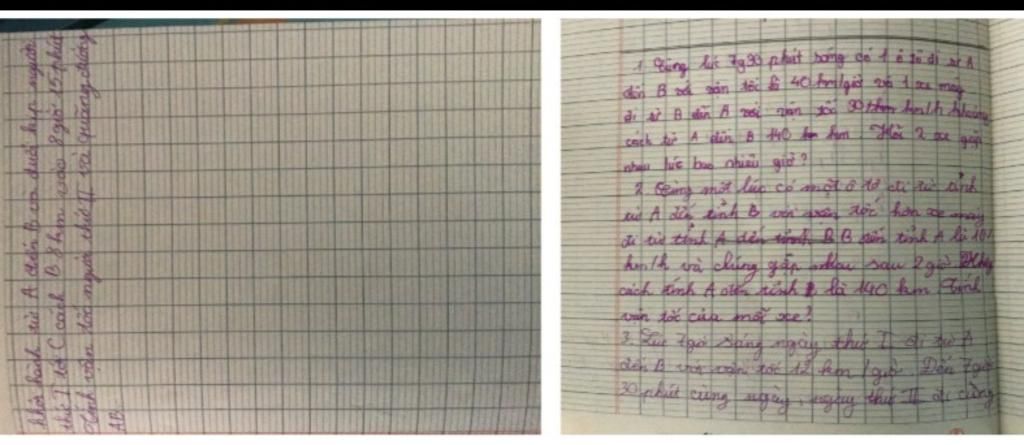 1. Cùng lúc 7g30 phút sáng có 1 ô tô đi từ A
đến B với vận tốc là 40 km/giờ và 1 xe máy
đi từ B đến A với vận tốc 30 km/h khoảng
cách từ A đến B 140 km Hỏi 2 xe gặp
nhau lúc bao nhiêu giờ?
2. Cùng một lúc có một ô tô đi từ tỉnh
từ A đến tỉnh B với vận tốc hơn xe máy
đi từ tỉnh A đến tỉnh B B đến tỉnh A là 10
km/h và chúng gặp nhau sau 2 giờ
cách tỉnh A đến tỉnh B là 140 km Tính
vận tốc của mỗi xe?
3. Lúc 7giờ sáng người thứ I đi từ A
đến B với vận tốc 12 km/giờ Đến 7 giờ
30 phút cùng ngày, người thứ II đi cũng
khởi hành từ A đến B và đuổi kịp người
thứ I tới C cách B 8 km vào 8 giờ 15 phút
Tính vận tốc người thứ II và quãng đường
AB.